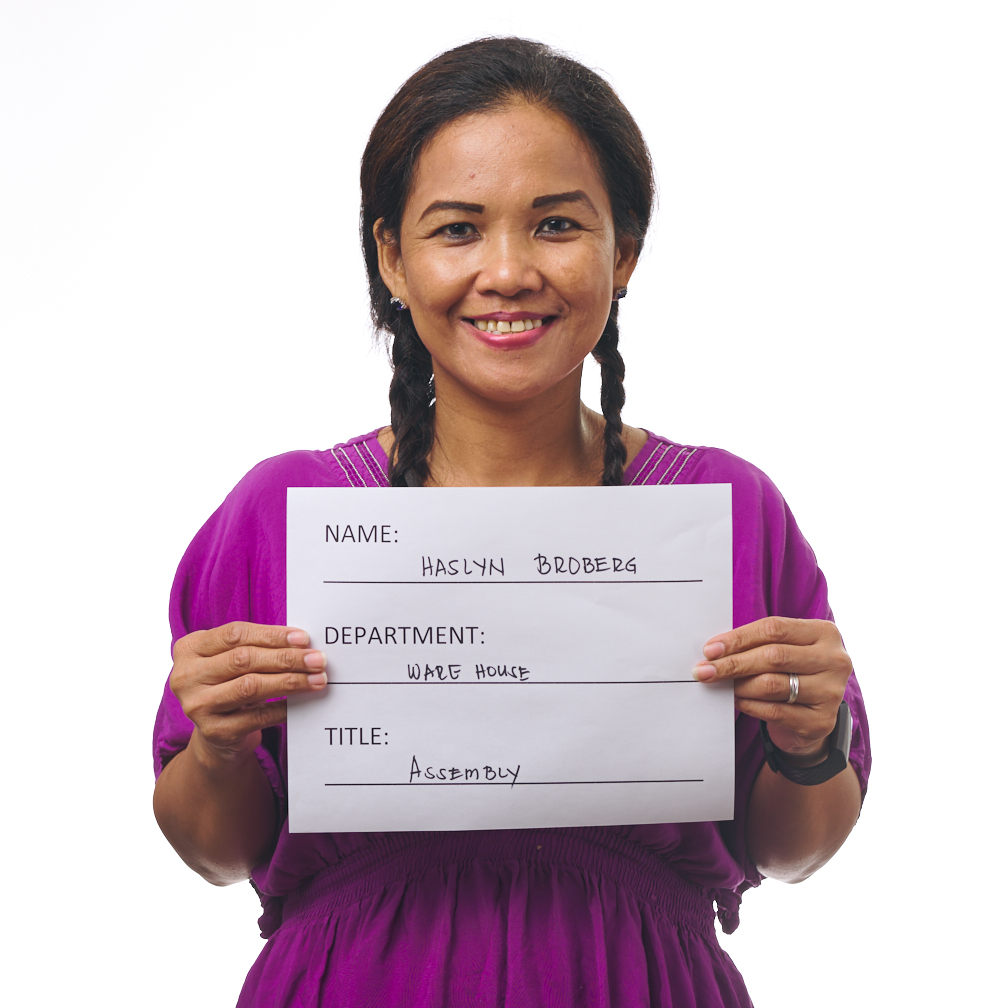 NAME:
HASLYN BROBERG
DEPARTMENT:
WARE HOUSE
TITLE:
ASSEMBLY